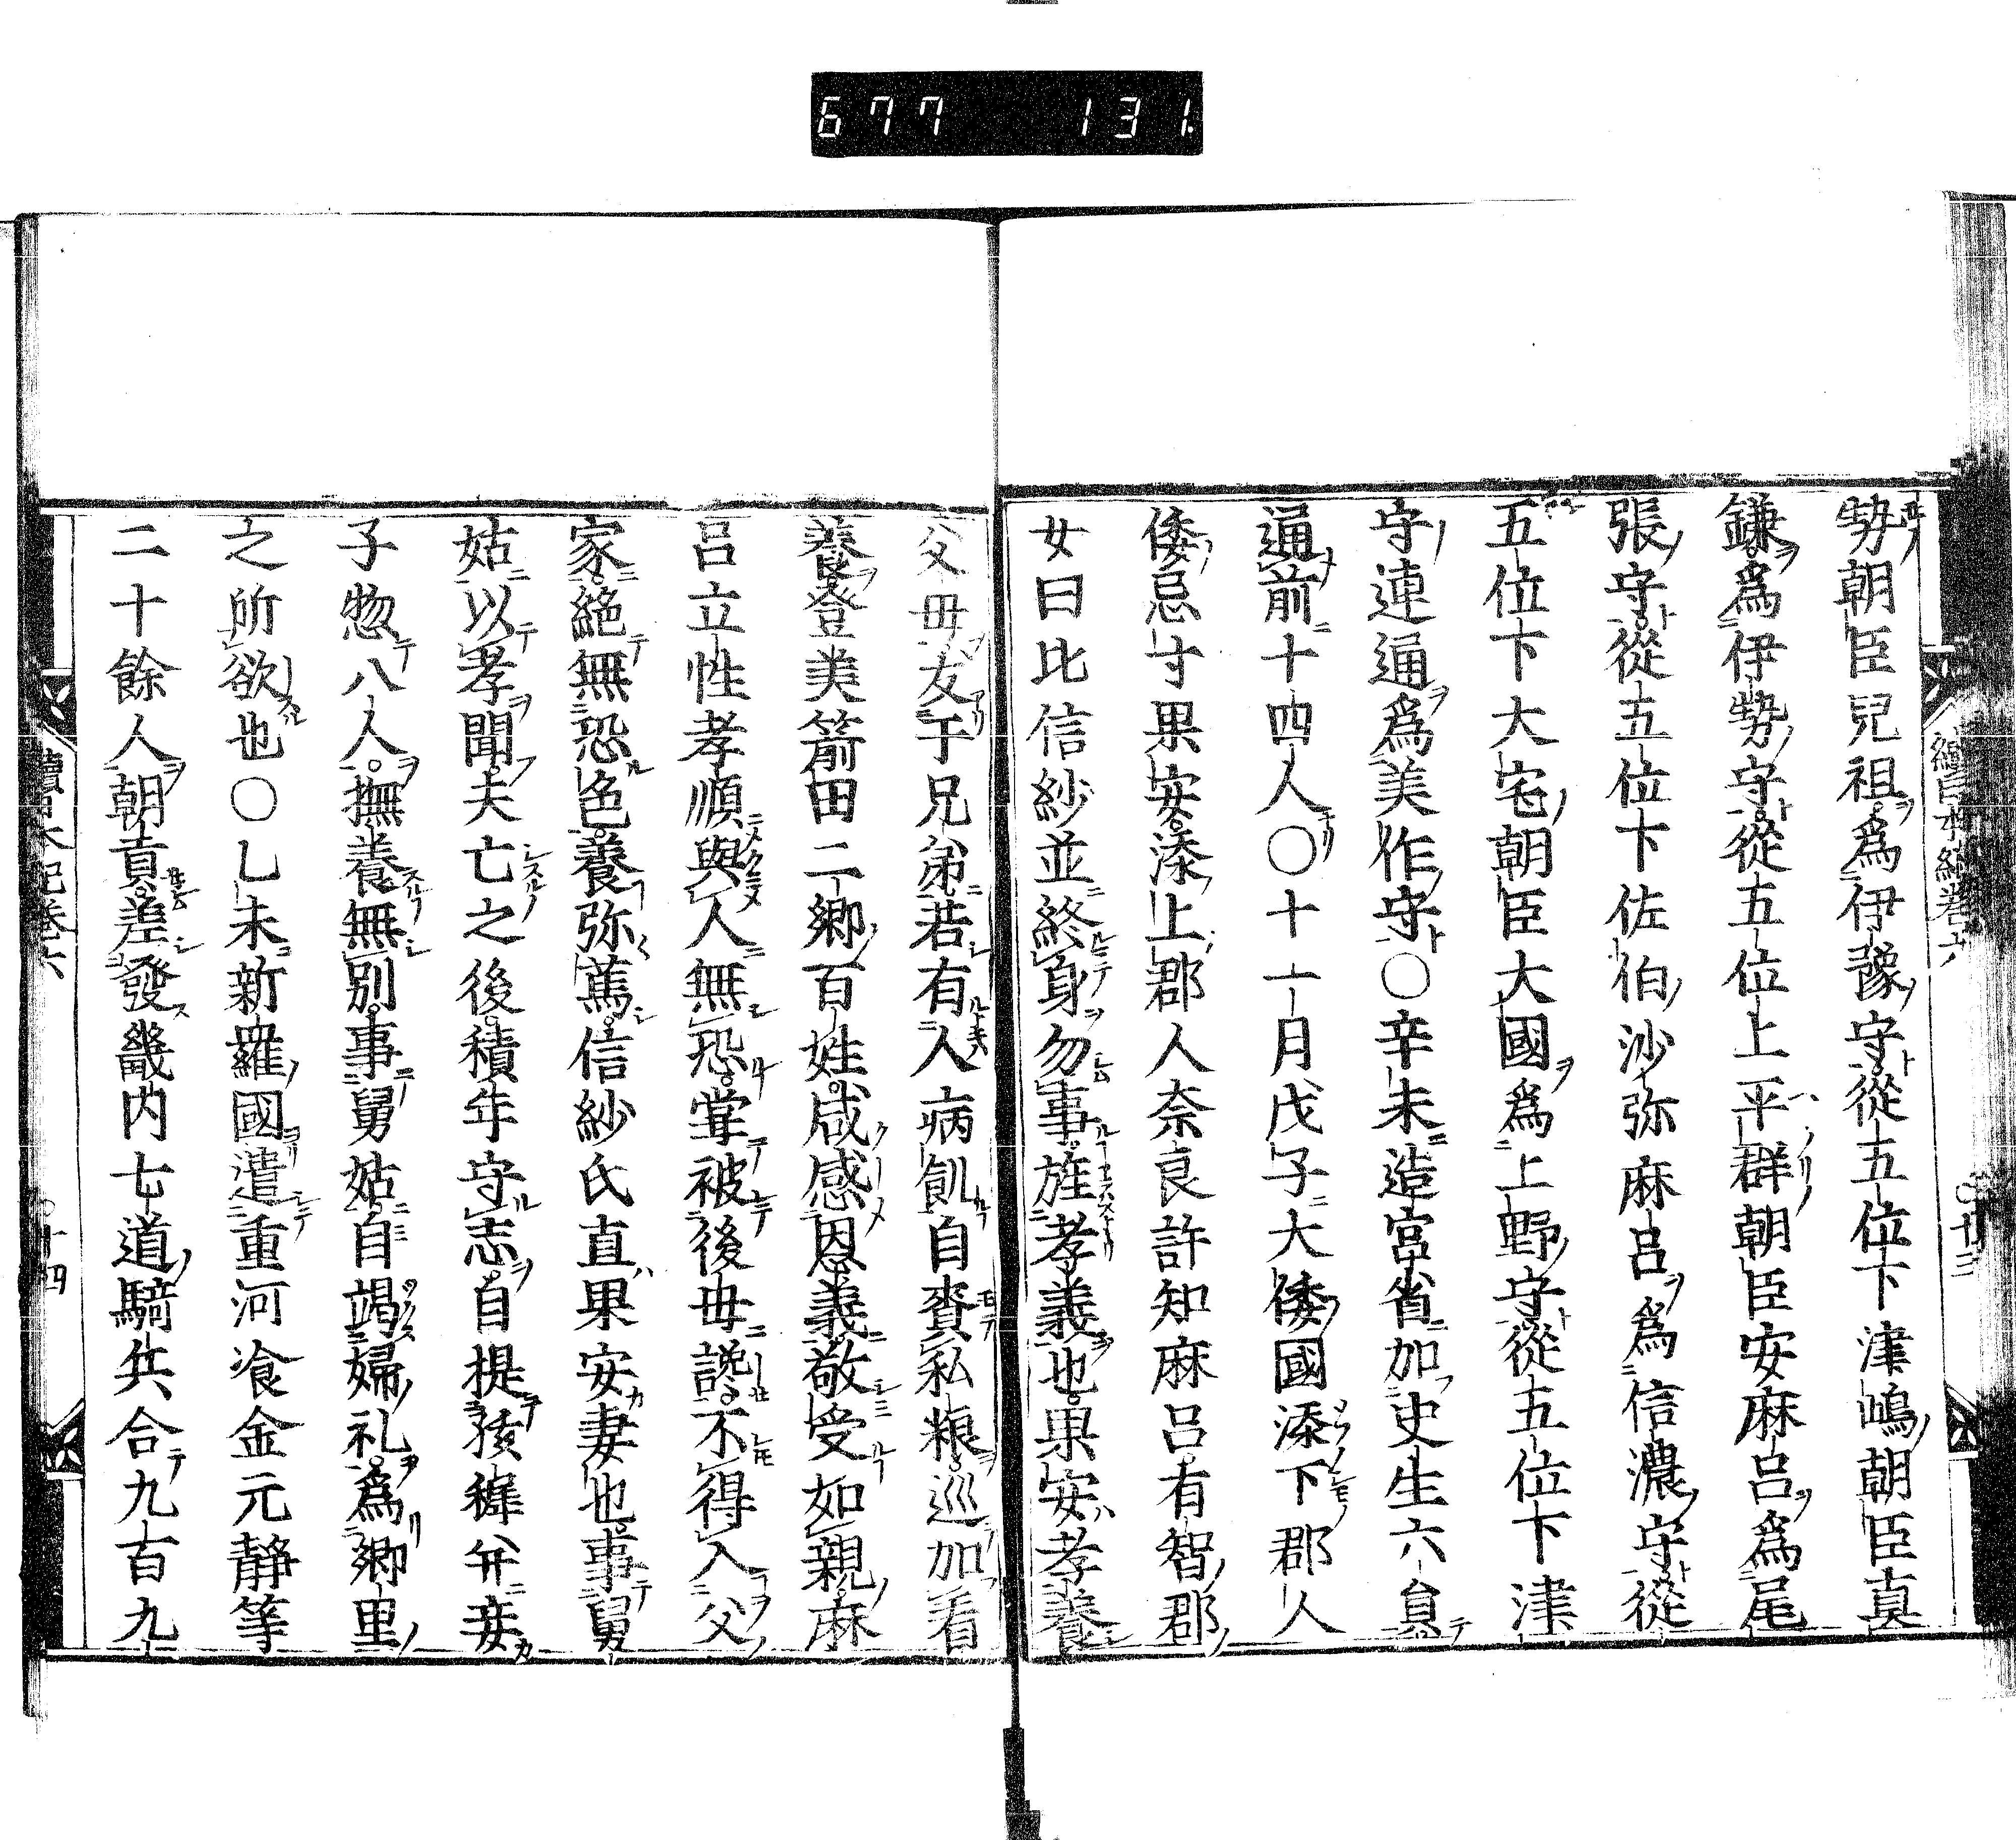 677 131.
勢朝臣兒祖爲伊豫守從五位下津嶋朝臣真
鎌爲伊勢守從五位上平群朝臣安麻呂爲尾
張守從五位下佐伯沙弥麻呂爲信濃守從
五位下大宅朝臣大國爲上野守從五位下津
守連通爲美作守〇辛未造宮省加史生六員
通前十四人〇十一月戊子大倭國添下郡人
倭忌寸果安添上郡人奈良許知麻呂有智郡
女曰比信紗並終身勿事旌孝義也果安孝養
父母友于兄弟若有人病飢自賚私粮巡加看
養登美箭田二鄉百姓咸感恩義敬受如親麻
呂立性孝順與人無恐甞被後母讒不得入父
家絕無恐色養弥篤信紗氏直果安妻也事舅
姑以孝聞夫亡之後積年守志自提孩穉并妾
子惣八人撫養無別事舅姑自竭婦礼爲鄉里
之所欲也〇乙未新羅國遣重河飡金元靜等
二十餘人朝貢差發畿内七道騎兵合九百九
續日本紀卷六
十四